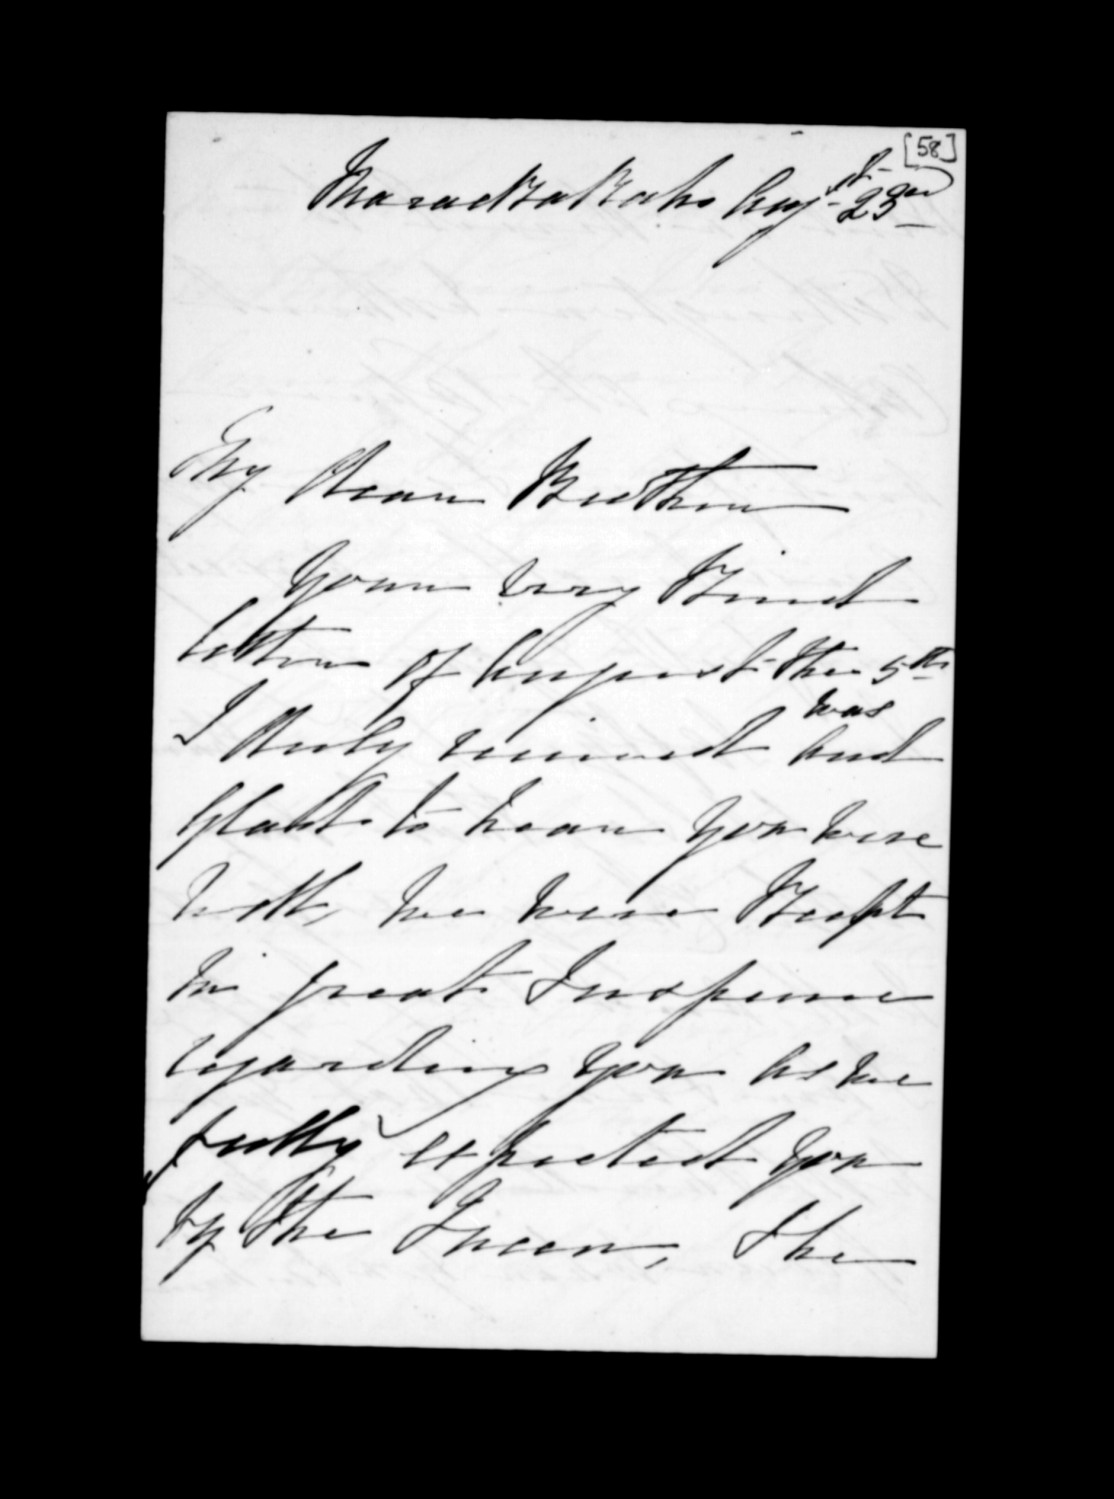 [58]
Maraekakaho Augst 23rd
My Dear Brother
Your very Kind
letter of August the 5th
I Duly received was and
Glad to hear you were
well, we were Keept
in great Suspense
regarding you as we
fully expected you
by the Queen, the